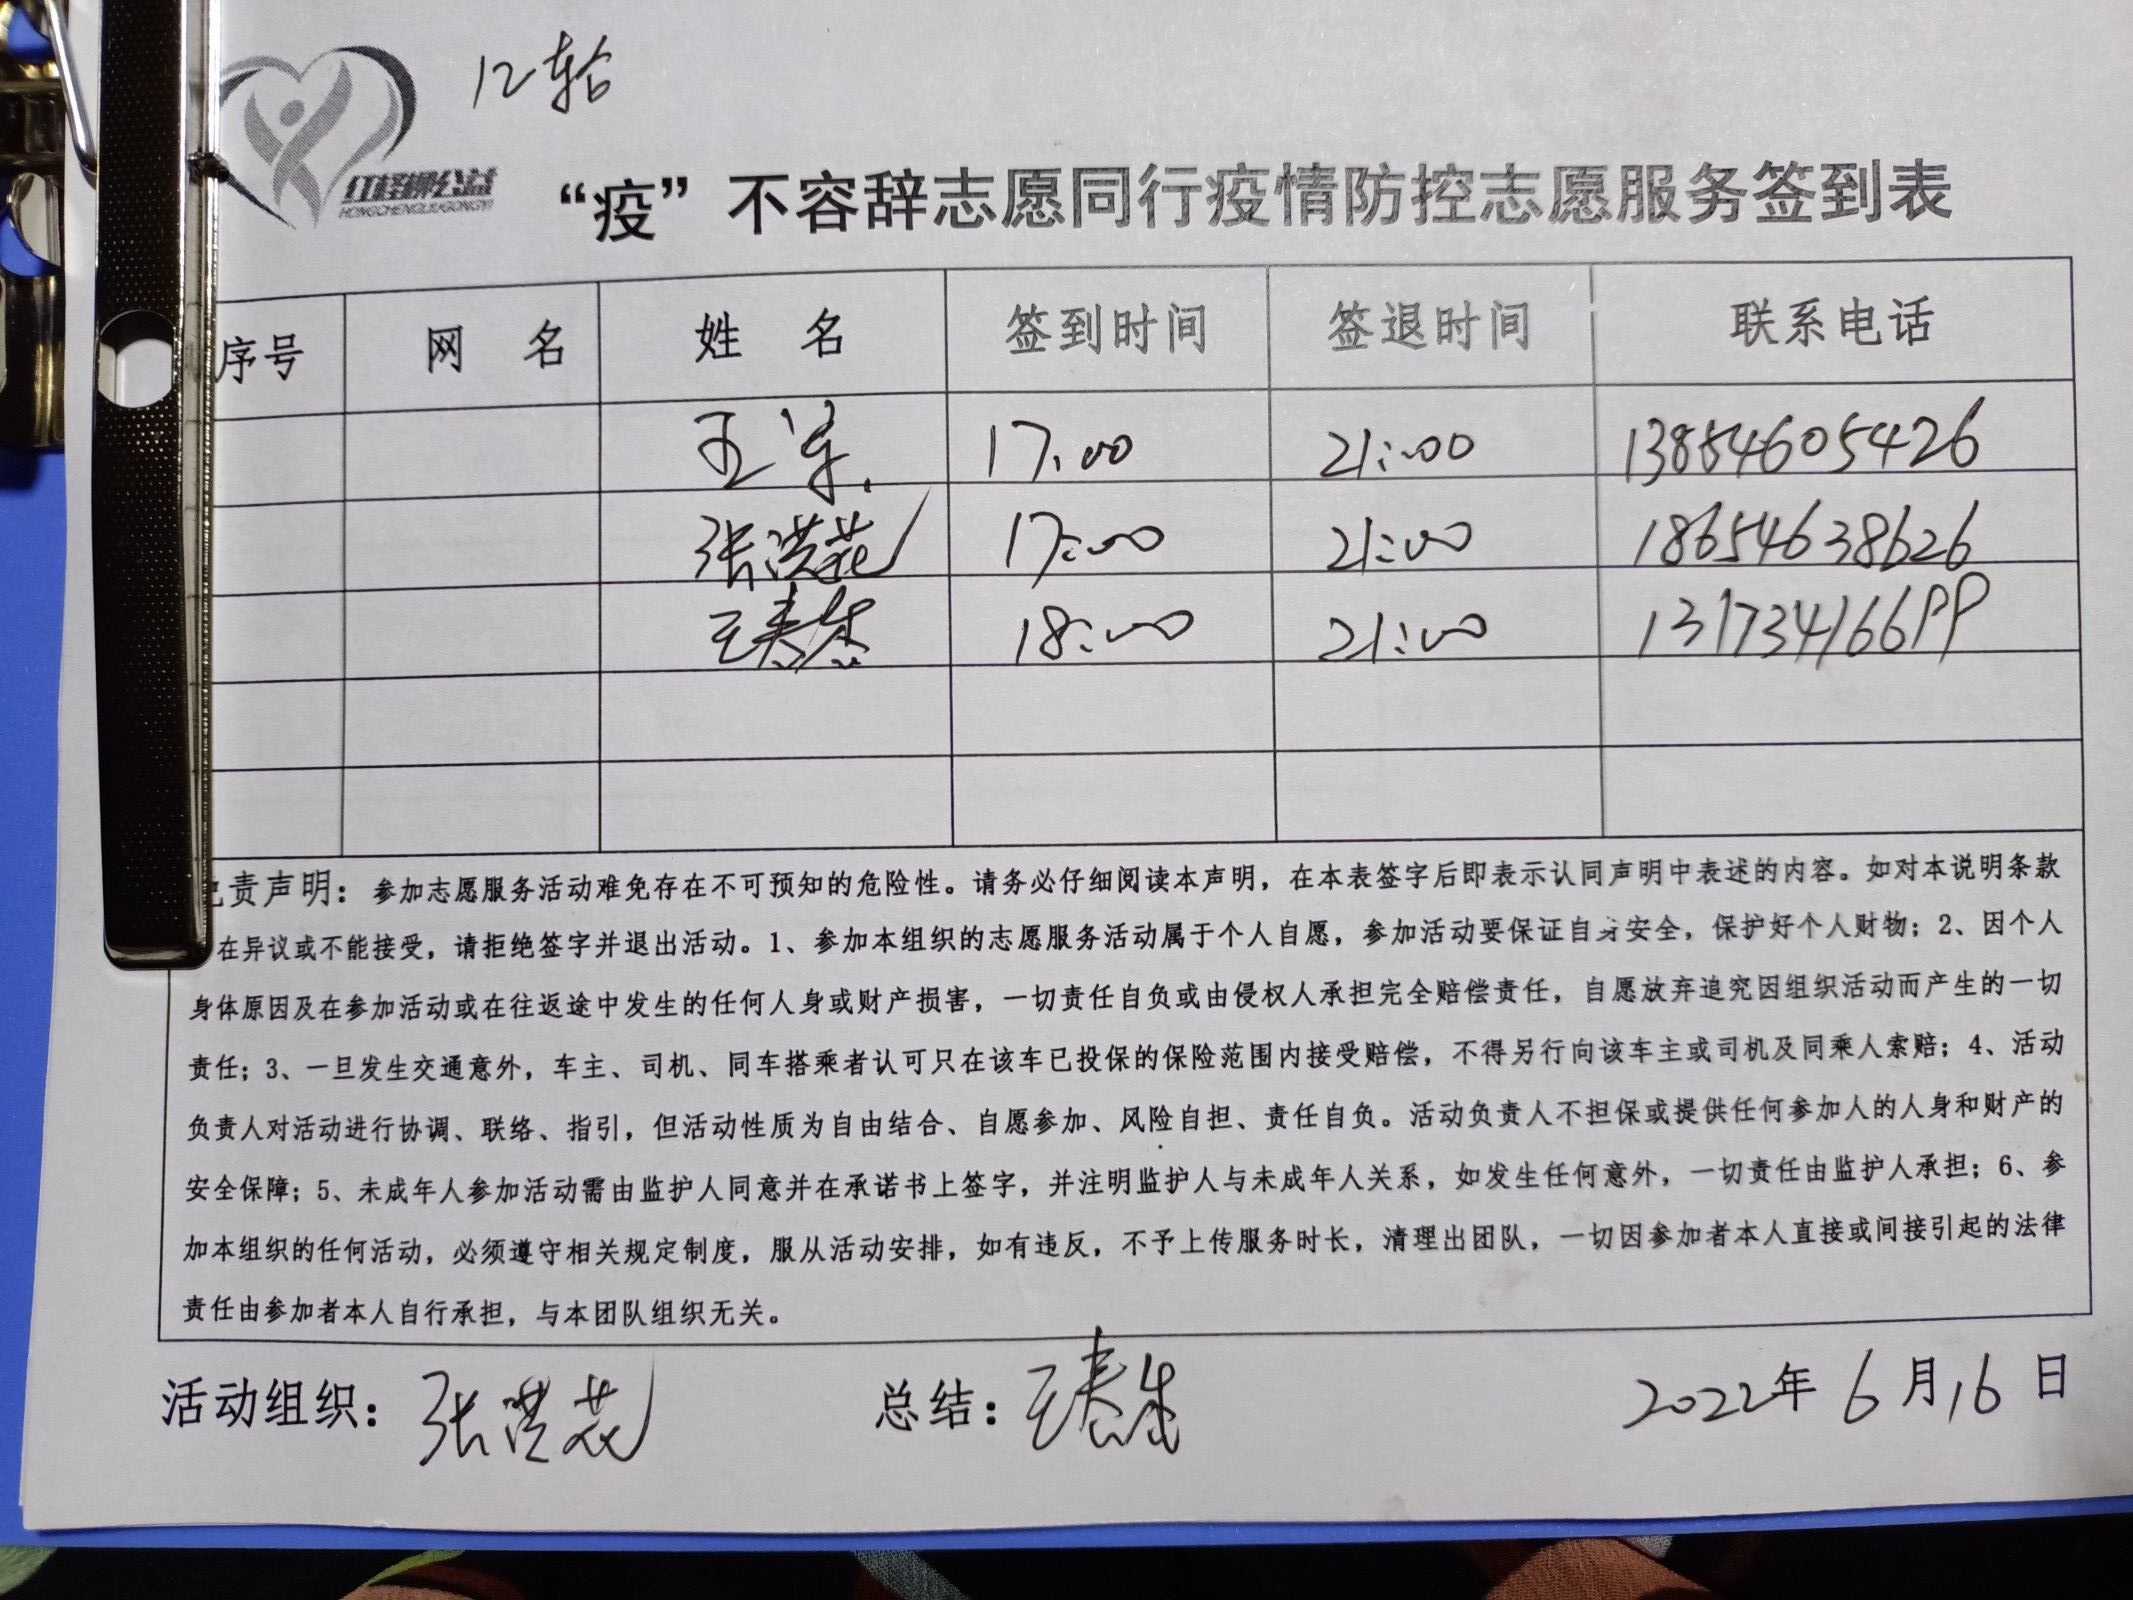 12轮
红柽柳公益
HONGCHENGLIUGONGYI
“疫”不容辞志愿同行疫情防控志愿服务签到表
序号 网 名 姓 名 签到时间 签退时间 联系电话
王 17:00 21:00 13854605426
张洪花 17:00 21:00 18654638626
王春 18:00 21:00 13173416699
责声明：参加志愿服务活动难免存在不可预知的危险性。请务必仔细阅读本声明，在本表签字后即表示认同声明中表述的内容。如对本说明条款
在异议或不能接受，请拒绝签字并退出活动。1、参加本组织的志愿服务活动属于个人自愿，参加活动要保证自身安全，保护好个人财物；2、因个人
身体原因及在参加活动或在往返途中发生的任何人身或财产损害，一切责任自负或由侵权人承担完全赔偿责任，自愿放弃追究因组织活动而产生的一切
责任；3、一旦发生交通意外，车主、司机、同车搭乘者认可只在该车已投保的保险范围内接受赔偿，不得另行向该车主或司机及同乘人索赔；4、活动
负责人对活动进行协调、联络、指引，但活动性质为自由结合、自愿参加、风险自担、责任自负。活动负责人不担保或提供任何参加人的人身和财产的
安全保障；5、未成年人参加活动需由监护人同意并在承诺书上签字，并注明监护人与未成年人关系，如发生任何意外，一切责任由监护人承担；6、参
加本组织的任何活动，必须遵守相关规定制度，服从活动安排，如有违反，不予上传服务时长，清理出团队，一切因参加者本人直接或间接引起的法律
责任由参加者本人自行承担，与本团队组织无关。
活动组织：张洪花 总结：王春 2022年6月16日